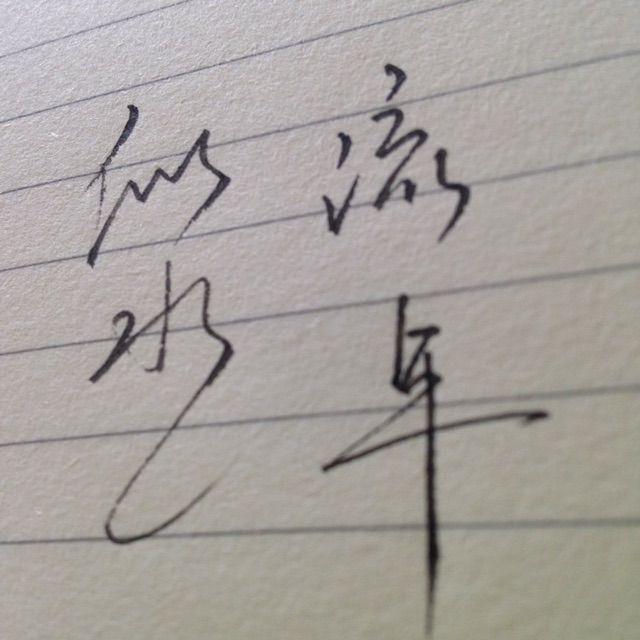 似水
流年